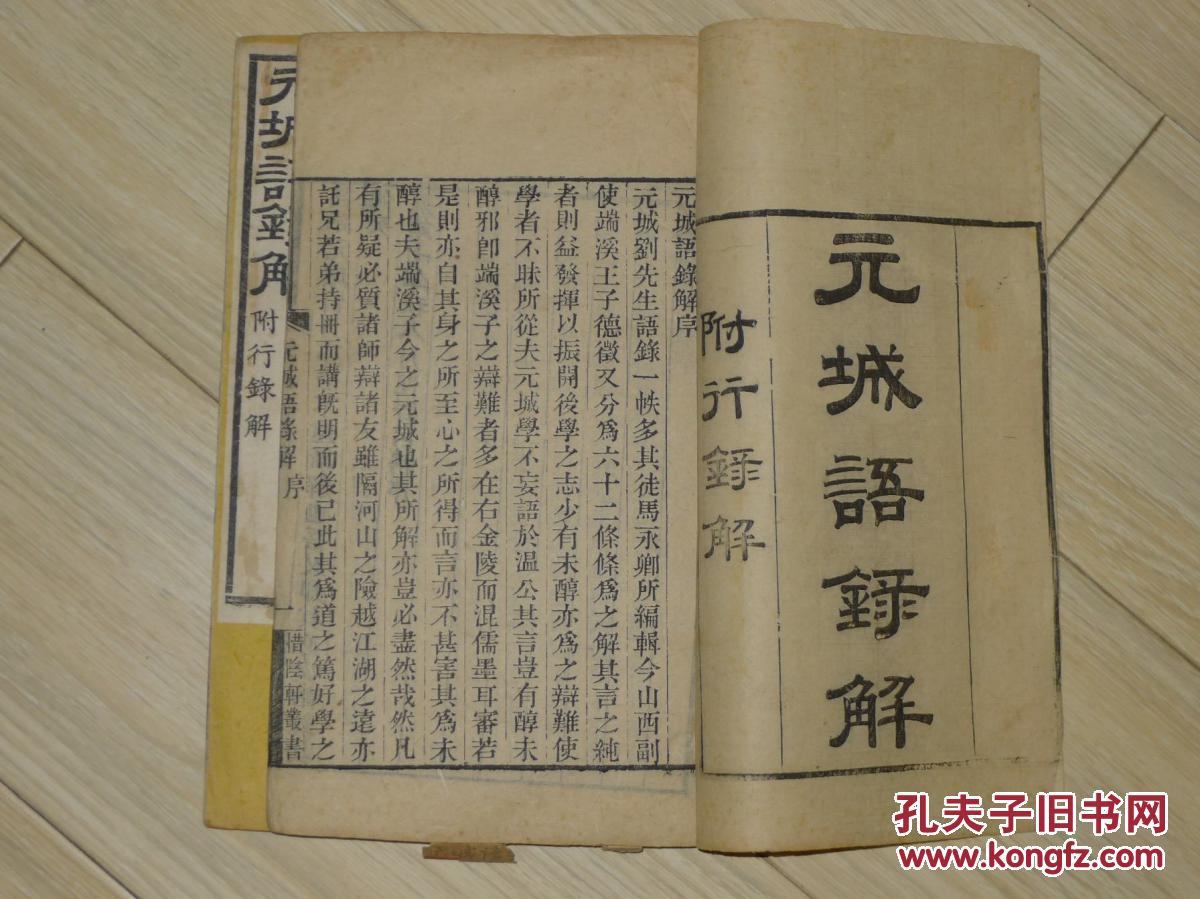 元城語錄解
附行錄解
元城語錄解序
元城劉先生語錄一帙多其徒馬永卿所編輯今山西副
使端溪王子德徵又分爲六十二條條爲之解其言之純
者則益發揮以振開後學之志少有未醇亦爲之辯難使
學者不眛所從夫元城學不妄語於温公其言豈有醇未
醇邪卽端溪子之辯難者多在右金陵而混儒墨耳審若
是則亦自其身之所至心之所得而言亦不甚害其爲未
醇也夫端溪子今之元城也其所解亦豈必盡然哉然凡
有所疑必質諸師辯諸友雖隔河山之險越江湖之遠亦
託兄若弟持冊而講旣明而後已此其爲道之篤好學之
元城語錄解 序
一
惜陰軒叢書
元城語錄解
附行錄解
孔夫子旧书网
www.kongfz.com